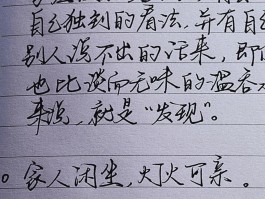 自己独到的看法，并有自己
别人说不出的话来，即
也比淡而无味的滥
来说，就是“发现”。
家人闲坐，灯火可亲。